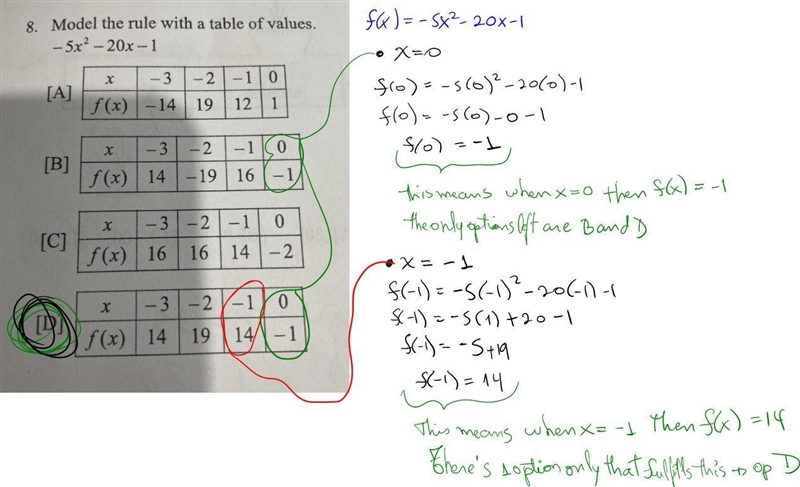 8. Model the rule with a table of values.
−5x² − 20x − 1
[A]
x −3 −2 −1 0
f(x) −14 19 12 1
[B]
x −3 −2 −1 0
f(x) 14 −19 16 −1
[C]
x −3 −2 −1 0
f(x) 16 16 14 −2
[D]
x −3 −2 −1 0
f(x) 14 19 14 −1
f(x) = -5x² - 20x - 1
• x=0
f(0) = -5(0)² - 20(0) - 1
f(0) = -5(0) - 0 - 1
f(0) = -1
This means when x=0 then f(x) = -1
the only options left are B and D
• x = -1
f(-1) = -5(-1)² - 20(-1) - 1
f(-1) = -5(1) + 20 - 1
f(-1) = -5 + 19
f(-1) = 14
This means when x = -1 then f(x) = 14
There's 1 option only that fulfills this → op D